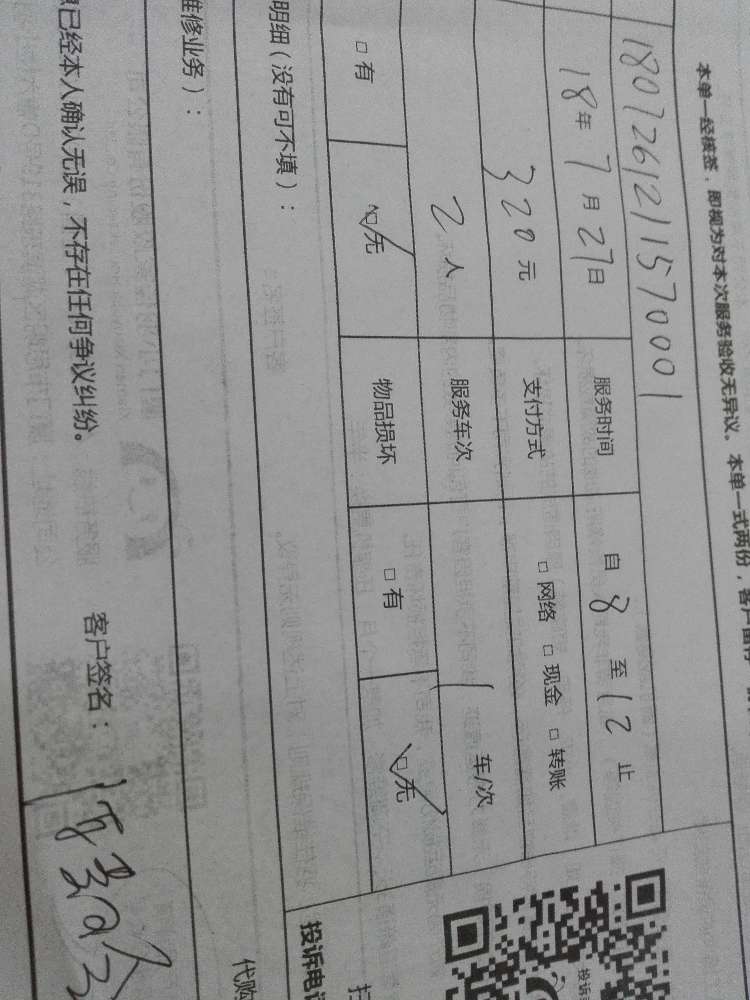 本单一经核签，即视为对本次服务验收无异议。本单一式两份，客户留存
1807261211570001
18年7月27日 服务时间 自8至12止
320元 支付方式 □网络 □现金 □转账
2人 服务车次 1车/次
□有 ☑无 物品损坏 □有 ☑无
明细（没有可不填）：
投诉电话
投诉
维修业务）：
代购
已经本人确认无误，不存在任何争议纠纷。 客户签名：